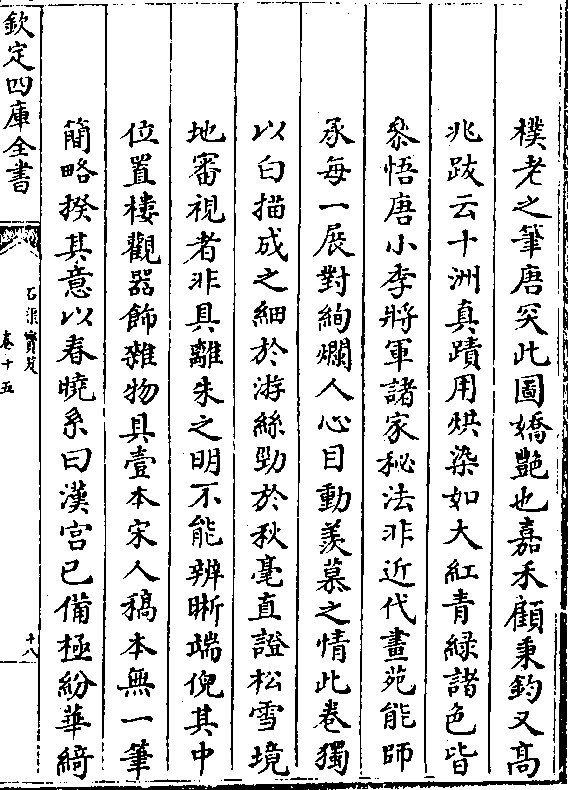 樸老之筆唐突此圖嬌艷也嘉禾顧秉鈞又高
兆跋云十洲真蹟用烘染如大紅青緑諸色皆
叅悟唐小李將軍諸家秘法非近代畫苑能師
承每一展對絢爛人心目動羡慕之情此卷獨
以白描成之細於游絲勁於秋毫直證松雪境
地審視者非具離朱之明不能辨晰端倪其中
位置樓觀器飾雜物具壹本宋人稿本無一筆
簡略揆其意以春曉系曰漢宫已備極紛華綺
欽定四庫全書
石渠寶笈
卷十五
十八